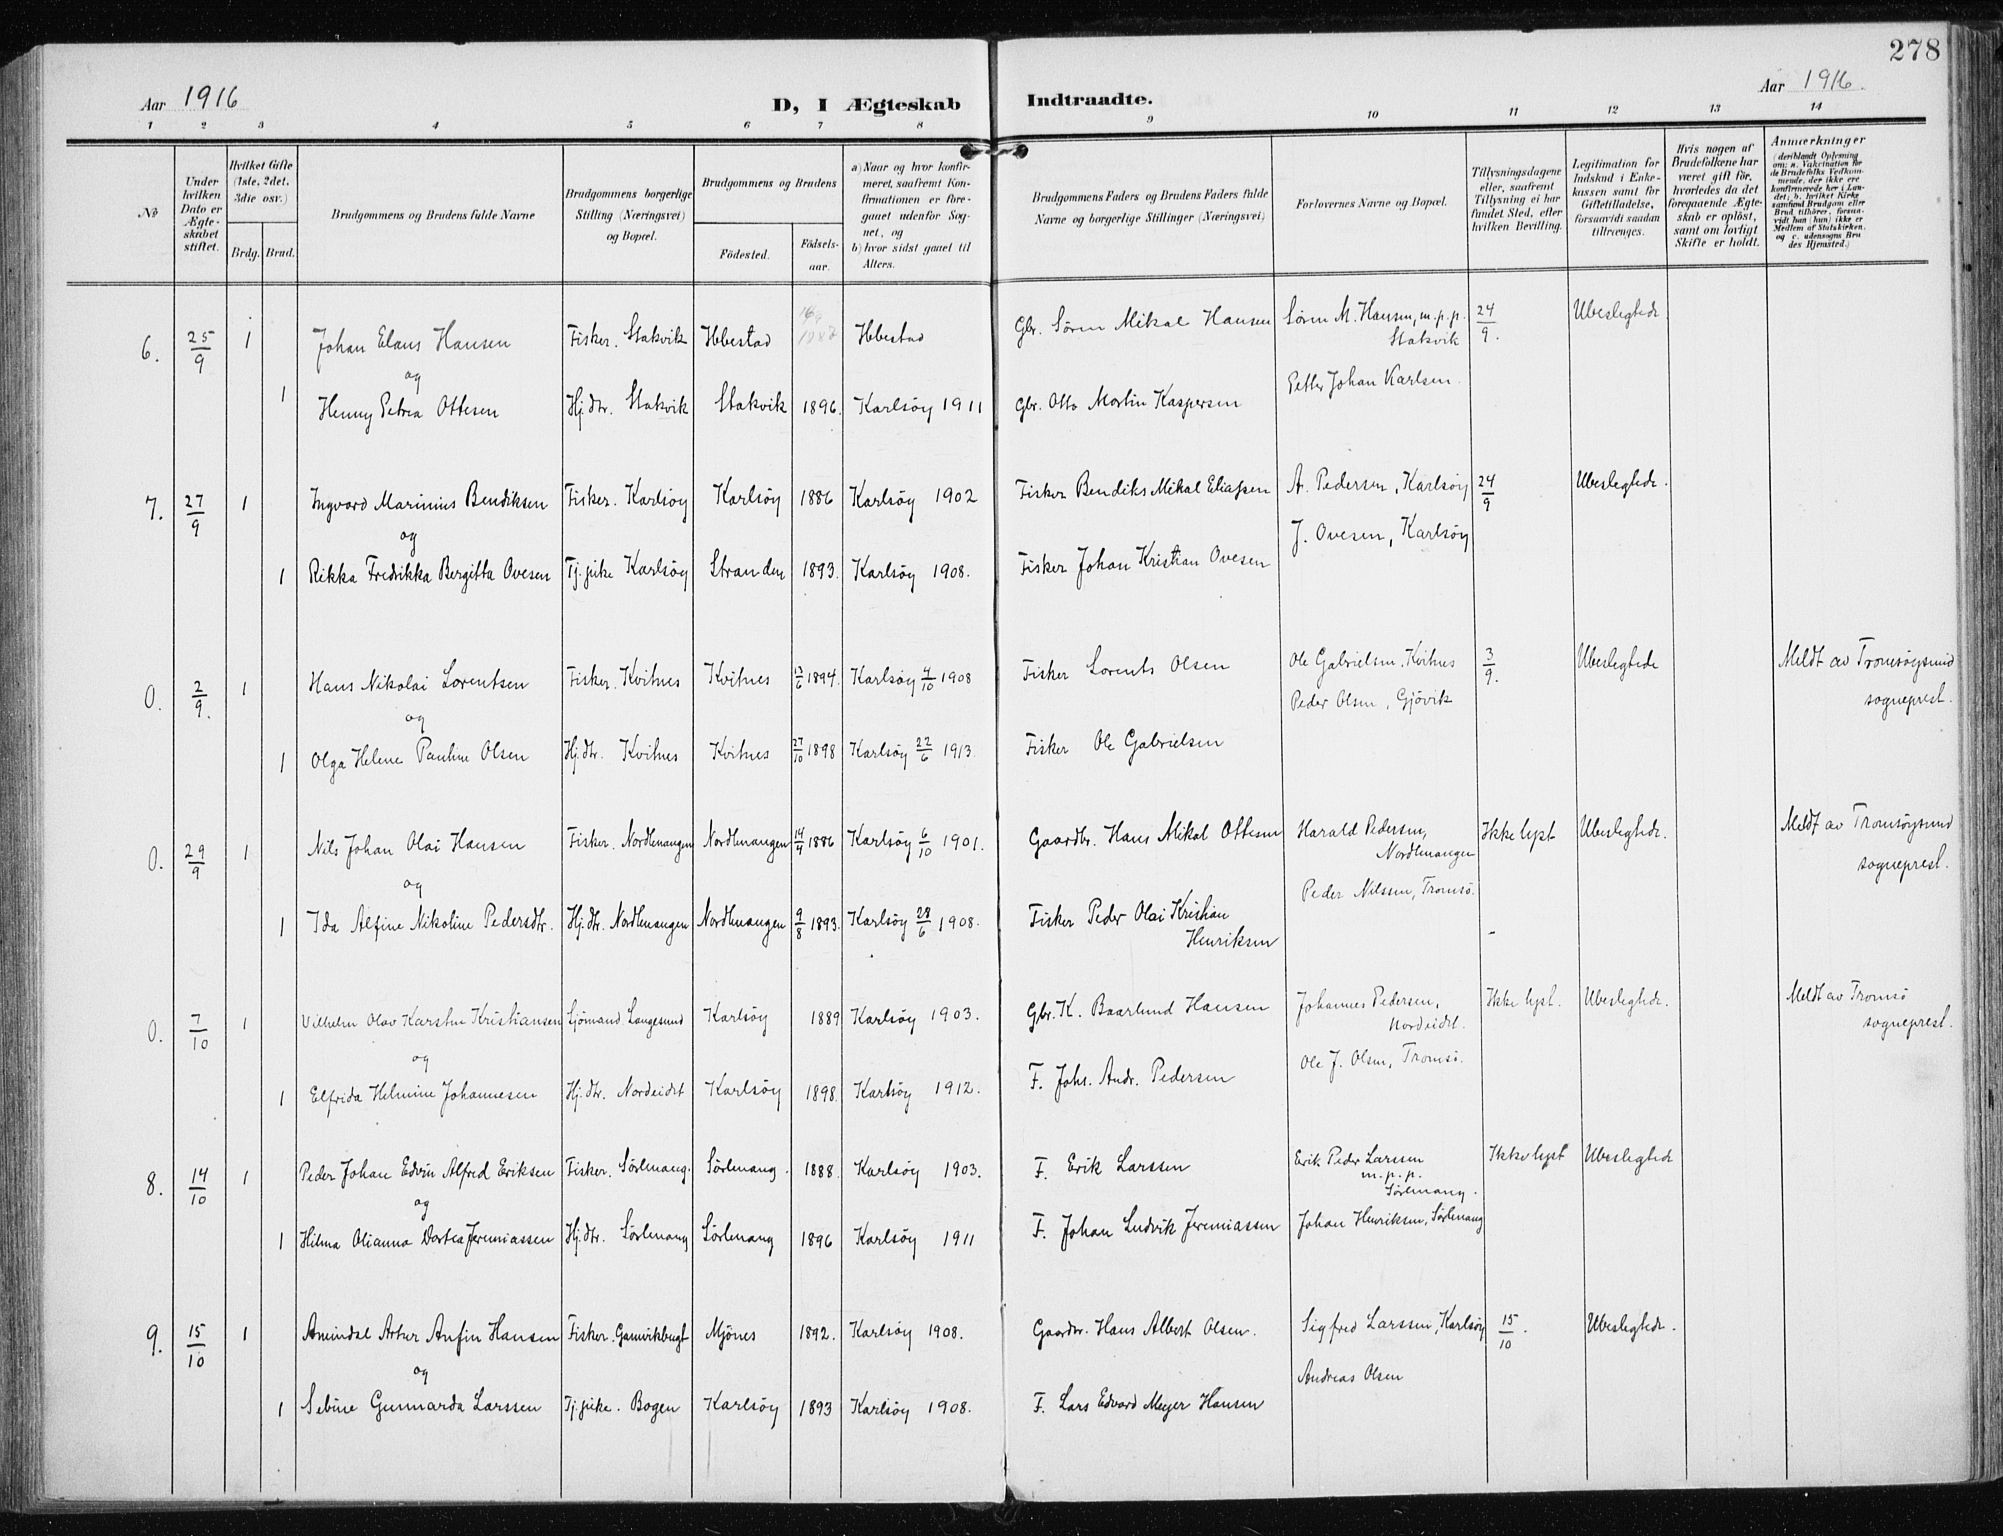 278
Aar 1916
D, I Ægteskab Indtraadte.
Aar 1916.
1 2 3 4 5 6 7 8 9 10 11 12 13 14
No
Under hvilken Dato er Ægteskabet stiftet.
Hvilket Gifte (1ste, 2det, 3die osv.)
Brdg. Brud.
Brudgommens og Brudens fulde Navne
Brudgommens borgerlige Stilling (Næringsvei) og Bopæl.
Brudgommens og Brudens
Födested.
Födselsaar.
a) Naar og hvor konfirmeret, saafremt Konfirmationen er foregaaet udenfor Sognet, og
b) hvor sidst gaaet til Alters.
Brudgommens Faders og Brudens Faders fulde Navne og borgerlige Stillinger (Næringsvei)
Forlovernes Navne og Bopæl.
Tillysningsdagene eller, saafremt Tillysning ei har fundet Sted, efter hvilken Bevilling.
Legitimation for Indskud i Enkekassen samt for Giftetilladelse, forsaavidt saadan tiltrænges.
Hvis nogen af Brudefolkene har været gift för, hvorledes da det foregaaende Ægteskab er oplöst, samt om lovligt Skifte er holdt.
Anmærkninger
(deriblandt Oplysning om: a. Vakcination for de Brudefolks Vedkommende, der ikke ere konfirmerede her i Landet; b. hvilket Kirkesamfund Brudgom eller Brud tilhörer, forsaavidt han (hun) ikke er Medlem af Statskirken, og c. udensogns Brudes Hjemsted.)
6. 25/9 1 Johan Elaus Hansen Fisker. Stakvik Ibbestad Ibbestad Gbr. Sören Mikal Hansen Sören M. Hansen, m.p.p. Stakvik 24/9. Ubeslegtede
og
1 Henny Petrea Ottesen Hj.dtr. Stakvik Stakvik 1896. Karlsöy 1911 Gbr. Otto Martin Kaspersen Petter Johan Karlsen.
7. 27/9 1 Ingvard Marinius Bendiksen Fisker. Karlsöy Karlsöy 1886 Karlsöy 1902 Fisker Bendiks Mikal Eliassen A. Pedersen, Karlsöy 24/9 Ubeslegtede.
og
1 Rikka Fredrikka Bergitta Ovesen Tj.pike Karlsöy Stranden 1893. Karlsöy 1908. Fisker Johan Kristian Ovesen J. Ovesen, Karlsöy
0. 2/9. 1 Hans Nikolai Lorentsen Fisker. Kvitnes Kvitnes 1894. Karlsöy 4/10 1908 Fisker Lorents Olsen Ole Gabrielsen. Kvitnes 3/9. Ubeslegtede Meldt av Tromsöysund sogneprest.
og Peder Olsen, Gjövik
1 Olga Helene Pauline Olsen Hj.dtr. Kvitnes Kvitnes 27/10 1898 Karlsöy 22/6 1913. Fisker Ole Gabrielsen
0. 29/9 1 Nils Johan Olai Hansen Fisker. Nordlenangen Nordlenangen 14/4 1886 Karlsöy 6/10 1901. Gaardbr. Hans Mikal Ottesen Harald Pedersen, Nordlenangen Ikke lyst Ubeslegtede. Meldt av Tromsöysund sogneprest.
og
1 Ida Alfine Nikoline Pedersdtr. Hj.dtr. Nordlenangen Nordlenangen 9/8 1893. Karlsöy 28/6 1908. Fisker Peder Olai Kristian Henriksen Peder Nilssen, Tromsö. -
0. 7/10 1 Vilhelm Olav Karsten Kristiansen Sjömand Langesund Karlsöy 1889 Karlsöy 1903. Gbr. K. Baarlund Hansen Johannes Pedersen, Nordeidet. Ikke lyst. Ubeslegtede. Meldt av Tromsö sogneprest.
og
1 Elfrida Helmine Johannesen Hj.dtr. Nordeidet Karlsöy 1898. Karlsöy 1912. F. Johs. Andr. Pedersen Ole J. Olsen, Tromsö.
8. 14/10 1 Peder Johan Edvin Alfred Eriksen Fisker. Sörlenang. Sörlenang. 1888. Karlsöy 1903. F. Erik Larssen Erik Peder Larssen m.p.p. Sörlenang. Ikke lyst Ubeslegtede
og
1 Hilma Olianna Dortea Jeremiassen Hj.dtr. Sörlenang Sörlenang 1896 Karlsöy 1911 F. Johan Ludvik Jeremiassen Johan Henriksen, Sörlenang
9. 15/10 1 Amindal Artur Anfin Hansen Fisker. Gamvikbugt Mjönes 1892. Karlsöy 1908. Gaardbr. Hans Albert Olsen. Sigfred Larssen, Karlsöy 15/10. Ubeslegtede.
og
1 Sebine Gunnarda Larssen Tj.pike. Bogen Karlsöy 1893 Karlsöy 1908. F. Lars Edvard Meyer Hansen Andreas Olsen